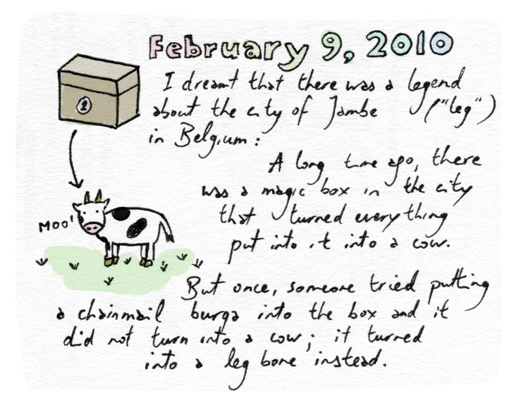 February 9, 2010
I dreamt that there was a legend
about the city of Jambe ("leg")
in Belgium:
A long time ago, there
was a magic box in the city
that turned everything
put into it into a cow.
MOO!
But once, someone tried putting
a chainmail burqa into the box and it
did not turn into a cow; it turned
into a leg bone instead.